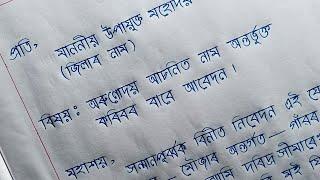 প্ৰতি,
মাননীয় উপায়ুক্ত মহোদয়
(জিলাৰ নাম)
বিষয় : অৰুণোদয় আচনিত নাম অন্তৰ্ভুক্ত
কৰিবৰ বাবে আবেদন।
মহাশয়,
সন্মানপূৰ্ব্বক বিনীত নিবেদন এই যে
মৌজাৰ অন্তৰ্গত — গাঁৱৰ